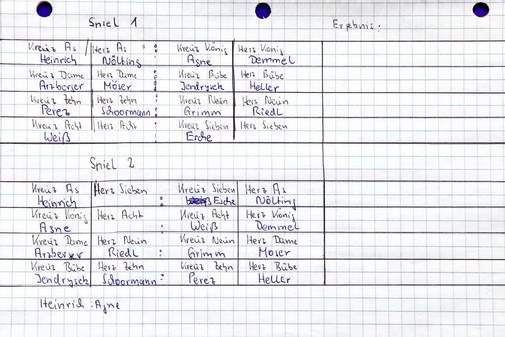 Spiel 1 Ergebnis:
Kreuz As Herz As : Kreuz König Herz König
Heinrich Nölting : Asne Demmel
Kreuz Dame Herz Dame : Kreuz Bübe Herz Bübe
Arzberger Möser : Jendrysch Heller
Kreuz Zehn Herz Zehn : Kreuz Neün Herz Neün
Perez Schoormann : Grimm Riedl
Kreuz Acht Herz Acht : Kreuz Sieben Herz Sieben
Weiß Esche
Spiel 2
Kreuz As Herz Sieben Kreuz Sieben Herz As
Heinrich : Esche Nölting
Kreuz König Herz Acht Kreuz Acht Herz König
Asne : Weiß Demmel
Kreuz Dame Herz Neün Kreuz Neün Herz Dame
Arzberger Riedl : Grimm Moser
Kreuz Bübe Herz Zehn Kreuz Zehn Herz Bübe
Jendrysch Schoormann : Perez Heller
Heinrich - Asne